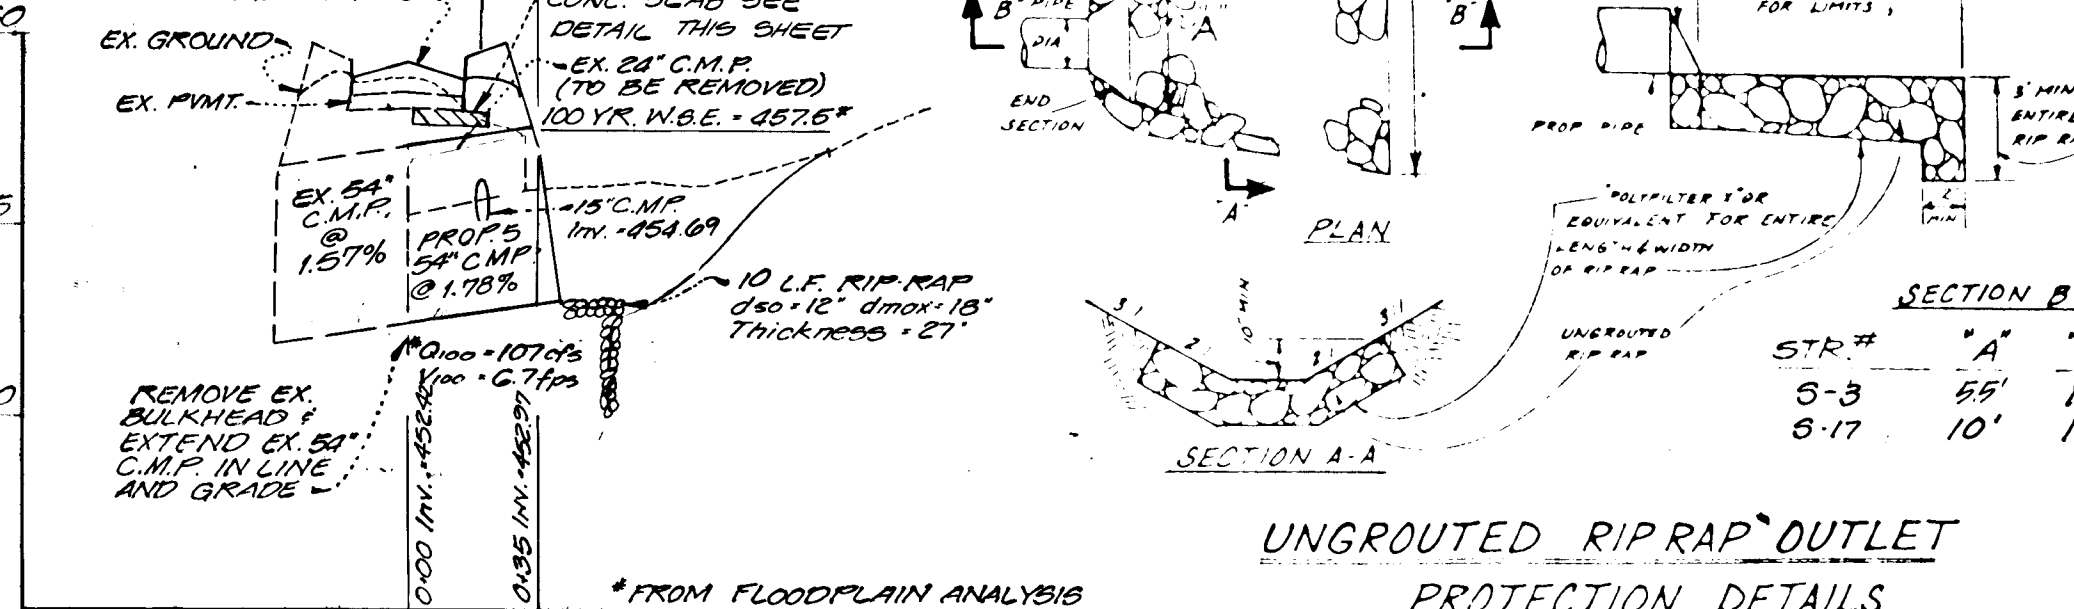 60
EX. GROUND
EX. PVMT.
CONC. SLAB SEE
DETAIL THIS SHEET
EX. 24" C.M.P.
(TO BE REMOVED)
100 YR. W.S.E. = 457.5*
5
EX. 54"
C.M.P.
@
1.57%
PROP. 5
54" CMP
@ 1.78%
15" C.M.P.
Inv. = 454.69
10 L.F. RIP-RAP
d50 = 12" dmax = 18"
Thickness = 27"
*Q100 = 107 cfs
V100 = 6.7 fps
0
REMOVE EX.
BULKHEAD &
EXTEND EX. 54"
C.M.P. IN LINE
AND GRADE
0+00 INV. =
0+35 INV. =
*FROM FLOODPLAIN ANALYSIS
"B"
PIPE
DIA
"A"
"B"
END
SECTION
"A"
PLAN
FOR LIMITS
PROP PIPE
3' MIN
ENTIRE
RIP RA
2'
MIN
"POLYFILTER X" OR
EQUIVALENT FOR ENTIRE
LENGTH & WIDTH
OF RIP RAP
UNGROUTED
RIP RAP
3
1
2
1
3
SECTION A-A
SECTION B
STR.# "A"
S-3 55' 1
S-17 10' 1
UNGROUTED RIP RAP OUTLET
PROTECTION DETAILS